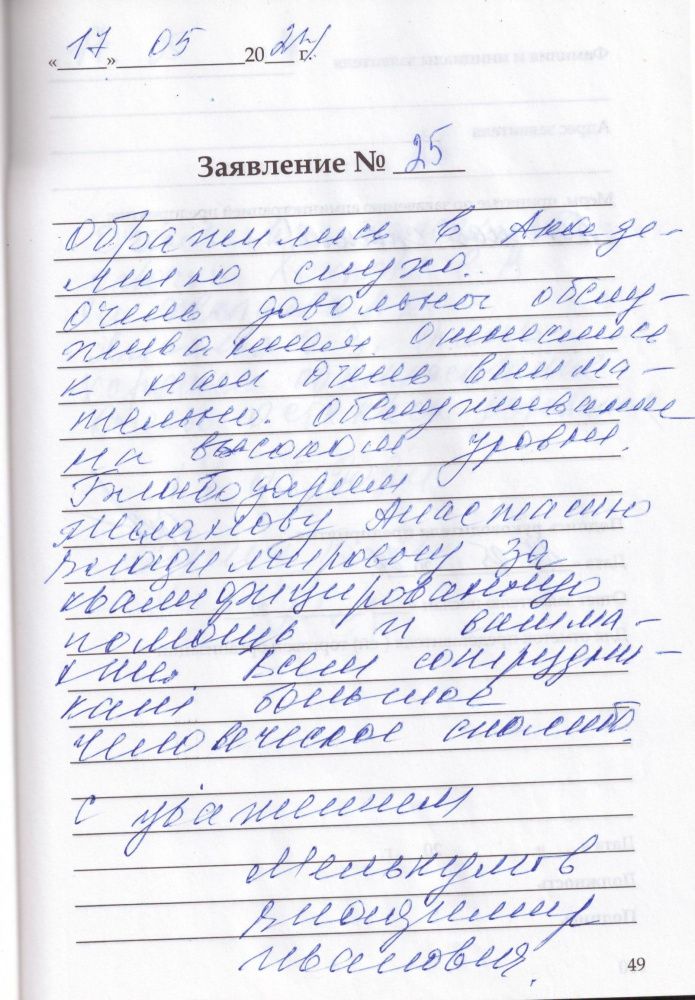 «17» 05 2024 г.
Заявление № 25
Обратились в Акаде-
мию слуха.
Очень довольны обслу-
живанием. Отнеслись
к нам очень внима-
тельно. Обслуживание
на высоком уровне.
Благодарим
Анастасию
Владимировну за
квалифицированную
помощь и внима-
ние. Всем сотрудни-
кам большое
человеческое спасибо.
С уважением
Мелькумов
Владимир
Иванович
49